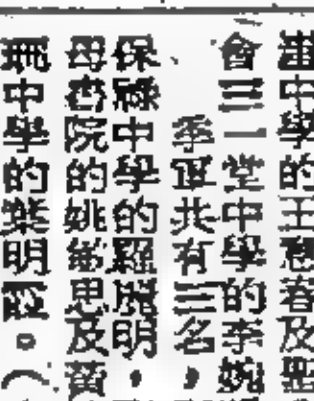 中學的王惠春及聖
會三一堂中學的李婉
季軍共有三名，
保祿中學的羅勝明，
母書院的姚 思及黃
中學的葉明
。（